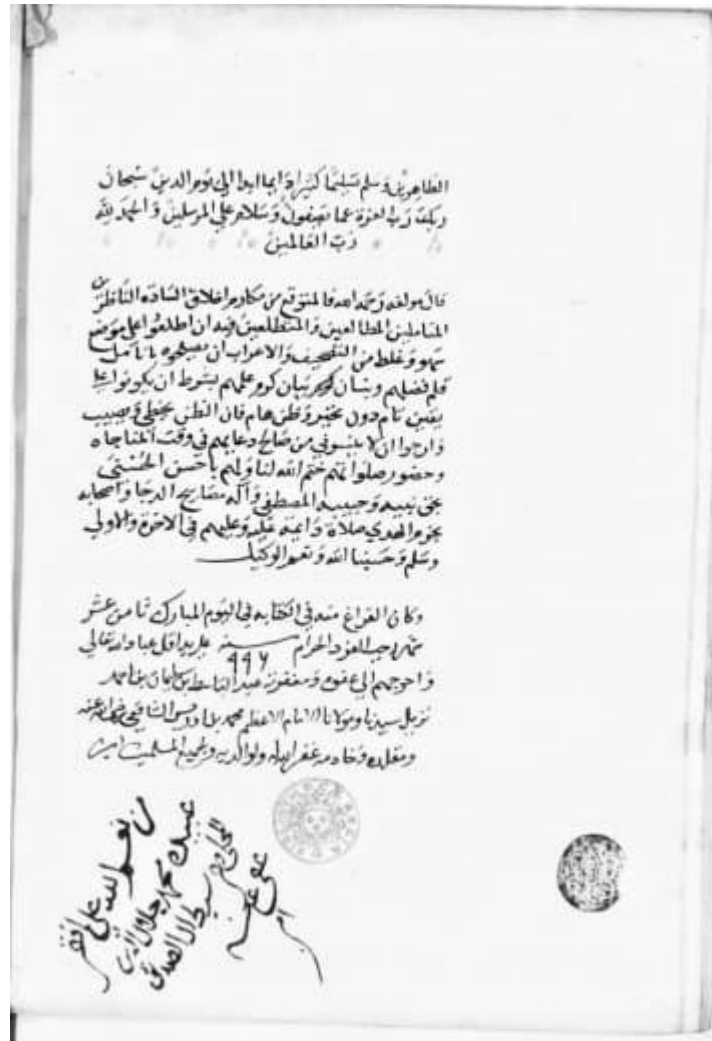 الطاهرين وسلم تسليما كثيرا دايما ابدا الى يوم الدين سبحان
ربك رب العزة عما يصفون وسلام على المرسلين والحمد لله
رب العالمين
قال مولفه رحمه الله فالمتوقع من مكارم اخلاق السادة الناظرين
المتاملين المطالعين والمتطلعين فيه ان اطلعوا على موضع
سهو وغلط من التصحيف والاعراب ان يصلحوه بانامل
قلم فضلهم وبنان كرم علمهم بشرط ان يكونوا على
يقين تام دون تخير وظن هام فان الظن يخطي ويصيب
وارجوا ان لا ينسوني من صالح دعايهم في وقت المناجاه
وحضور صلواتهم ختم الله لنا ولهم باحسن الحسنى
بحق نبيه وحبيبه المصطفى وآله مصابيح الدجا واصحابه
نجوم الهدي صلاة دايمة عليه وعليهم في الاخرة والاولي
وسلم وحسبنا الله ونعم الوكيل
وكان الفراغ منه في الكتابه في اليوم المبارك ثامن عشر
شهر رجب الفرد الحرام سنه ٩٩٦ علي يد اقل عباد الله تعالي
واحوجهم الي عفوه ومغفرته عبد الباسط بن سليمان بن احمد
نزيل سيدنا ومولانا الامام الاعظم محمد بن ادريس الشافعي رضي الله عنه
ومقلده وخادمه غفر الله له ولوالديه ولجميع المسلمين امين
من نعم الله علي افقر
عبيده محمد جلال الدين
سبط ال الصديق
عفي عنه